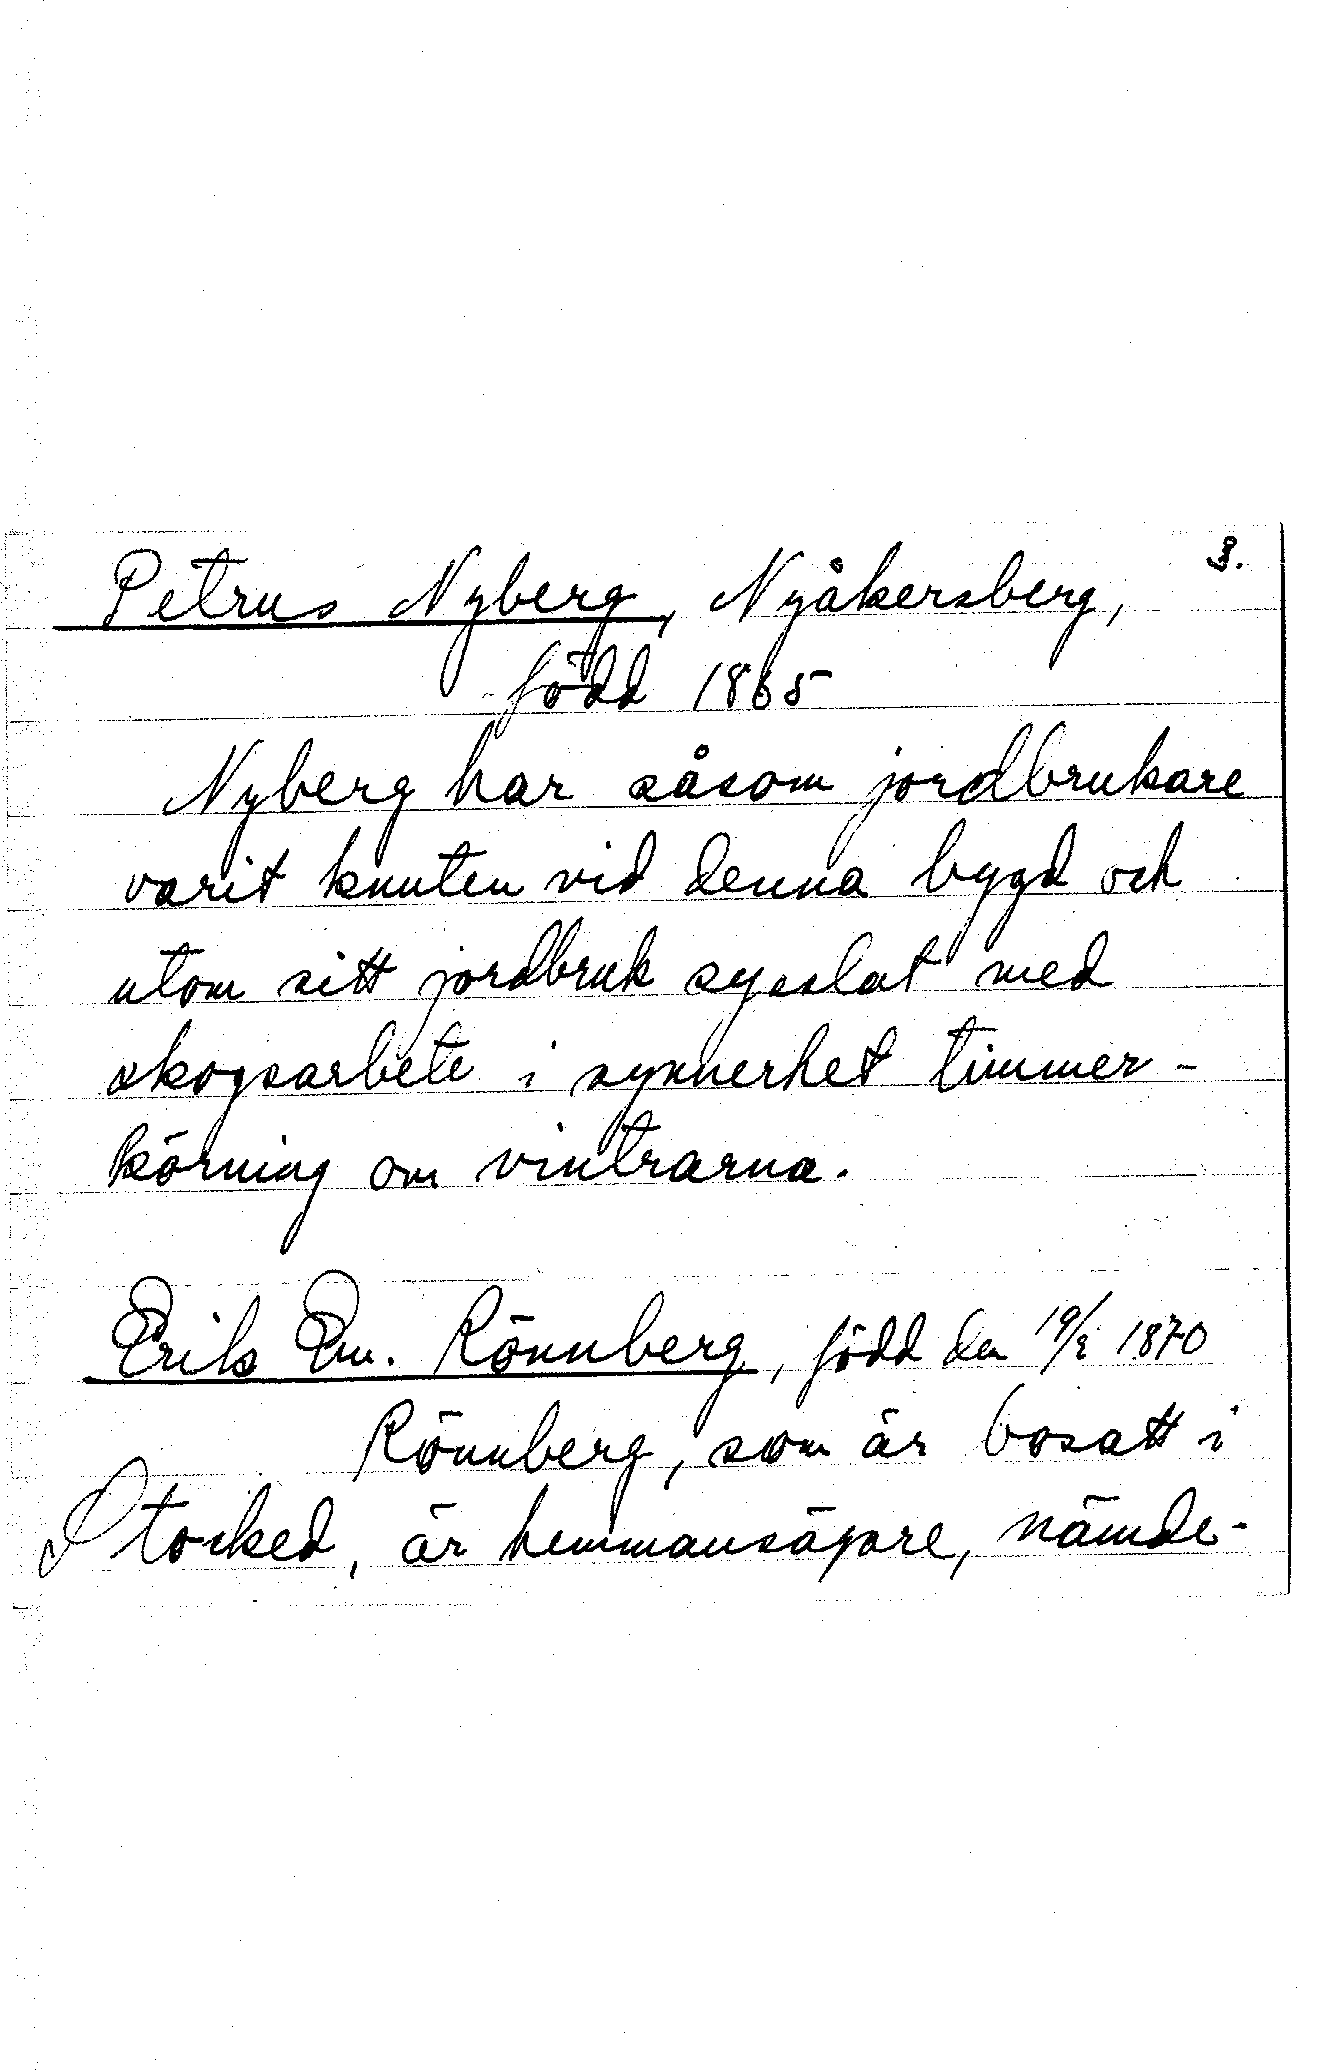 3.
Petrus Nyberg, Nyåkersberg,
född 1865
Nyberg har såsom jordbrukare
varit knuten vid denna bygd och
utom sitt jordbruk sysslat med
skogsarbete i synnerhet timmer-
körning om vintrarna.
Erik Em. Rönnberg, född den 1870
Rönnberg, som är bosatt i
Storked, är hemmansägare, nämde-